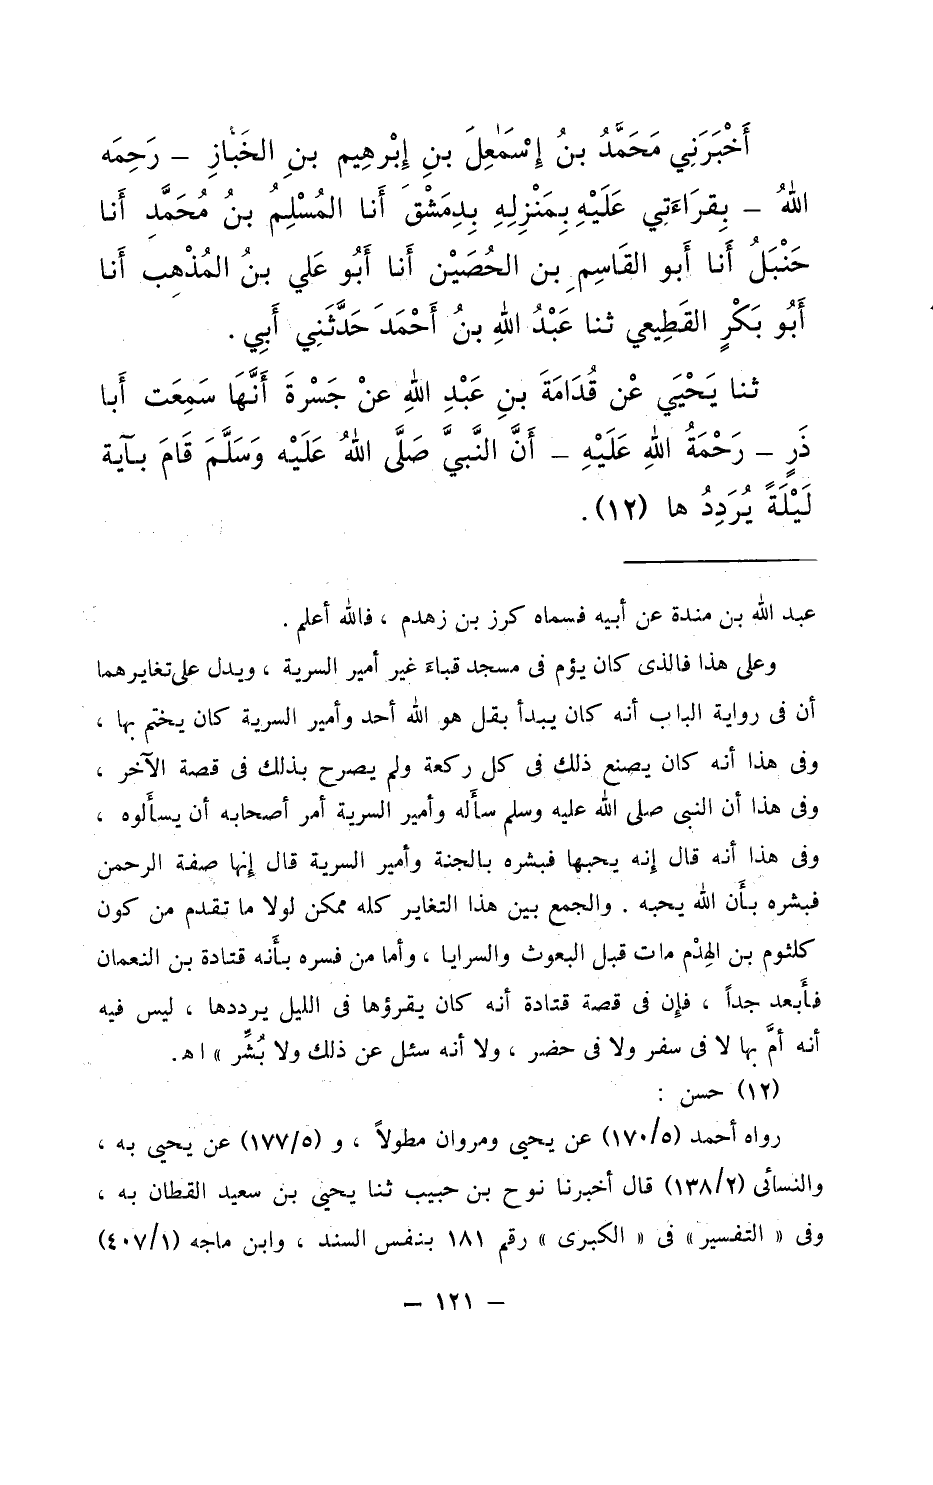 أَخْبَرَنِي مَحَمَّدُ بنُ إِسْمَٰعِلَ بنِ إِبْرهِيم بنِ الخَبَّازِ – رَحِمَه
اللهُ – بِقرَاءَتِي عَلَيْهِ بِمَنْزِلِهِ بِدِمَشْقَ أَنا المُسْلِمُ بنُ مُحَمَّدِ أَنا
حَنْبَلُ أَنا أَبو القَاسِمِ بن الحُصَيْن أَنا أَبُو عَلي بنُ المُذْهِبِ أَنا
أَبُو بَكْرٍ القَطِيعي ثنا عَبْدُ اللهِ بنُ أَحْمَدَ حَدَّثَنِي أَبِي .
ثنا يَحْيَي عْن قُدَامَةَ بنِ عَبْدِ اللهِ عنْ جَسْرةَ أَنَّهَا سَمِعَت أَبا
ذَرٍ – رَحْمَةُ اللهِ عَلَيْهِ – أَنَّ النَّبيَّ صَلَّى اللهُ عَلَيْه وَسَلَّمَ قَامَ بـآية
لَيْلَةً يُرَدِدُ ها (١٢) .
عبد الله بن مندة عن أبيه فسماه كرز بن زهدم ، فالله أعلم .
وعلى هذا فالذى كان يؤم فى مسجد قباء غير أمير السرية ، ويدل على تغايرهما
أن فى رواية الباب أنه كان يبدأ بقل هو الله أحد وأمير السرية كان يختم بها ،
وفى هذا أنه كان يصنع ذلك فى كل ركعة ولم يصرح بذلك فى قصة الآخر ،
وفى هذا أن النبى صلى الله عليه وسلم سأله وأمير السرية أمر أصحابه أن يسألوه ،
وفى هذا أنه قال إنه يحبها فبشره بالجنة وأمير السرية قال إنها صفة الرحمن
فبشره بأن الله يحبه . والجمع بين هذا التغاير كله ممكن لولا ما تقدم من كون
كلثوم بن الهِدْم مات قبل البعوث والسرايا ، وأما من فسره بأنه قتادة بن النعمان
فأبعد جداً ، فإن فى قصة قتادة أنه كان يقرؤها فى الليل يرددها ، ليس فيه
أنه أمَّ بها لا فى سفر ولا فى حضر ، ولا أنه سئل عن ذلك ولا بُشِّر » اهـ.
(١٢) حسن :
رواه أحمد (١٧٠/٥) عن يحيى ومروان مطولاً ، و (١٧٧/٥) عن يحيى به ،
والنسائى (١٣٨/٢) قال أخبرنا نوح بن حبيب ثنا يحيى بن سعيد القطان به ،
وفى « التفسير » فى « الكبرى » رقم ١٨١ بنفس السند ، وابن ماجه (٤٠٧/١)
– ١٢١ –